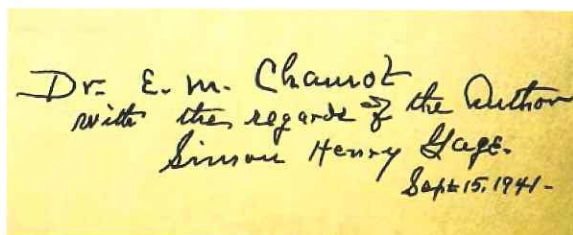 Dr. E. M. Chamot
with the regards of the Author
Simon Henry Gage.
Sept 15, 1941-